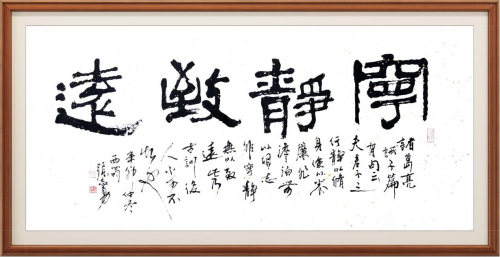 寧靜致遠
諸葛亮
誡子篇
有句云
夫君子之
行靜以修
身儉以養
非
澹泊無
以明志
非寧靜
無以致
遠此
古訓後
人不可不
仲冬
西蜀
張